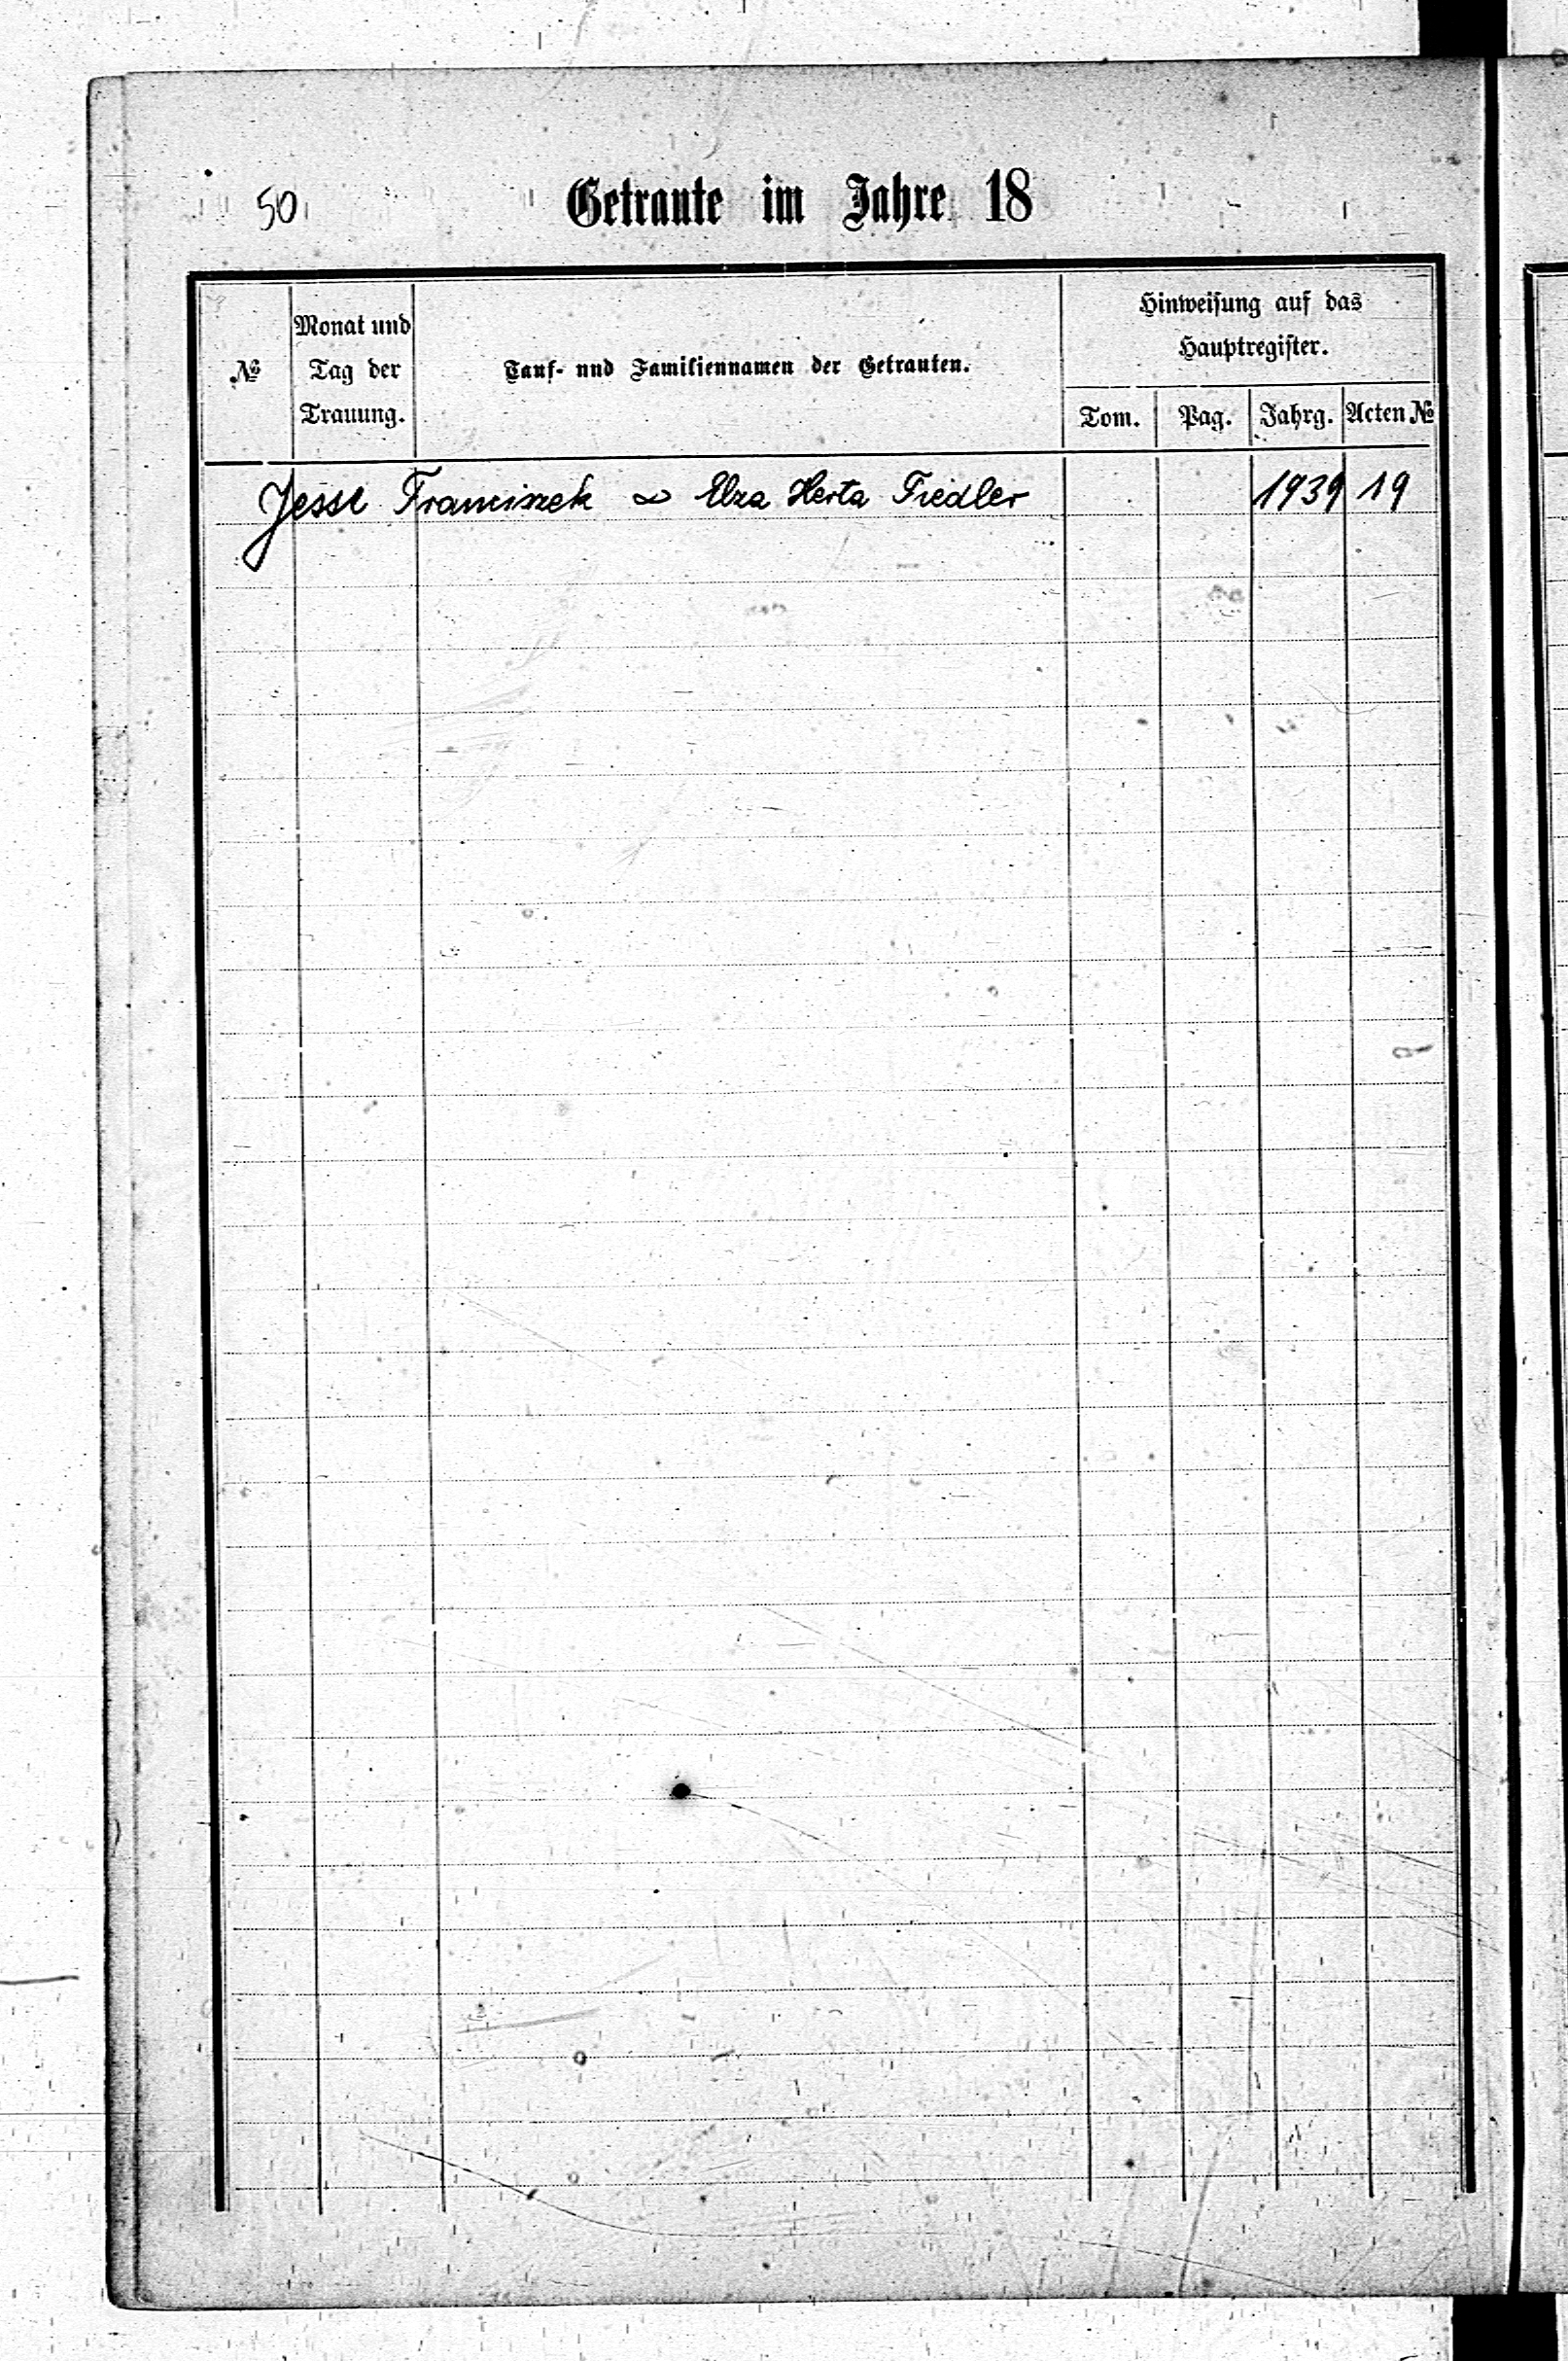 50
Getraute im Jahre 18
№
Monat und
Tag der
Trauung.
Tauf- und Familiennamen der Getrauten.
Hinweisung auf das
Hauptregister.
Tom.
Pag.
Jahrg.
Acten №
Jesse Franciszek ∞ Elza Herta Fiedler 1939 19